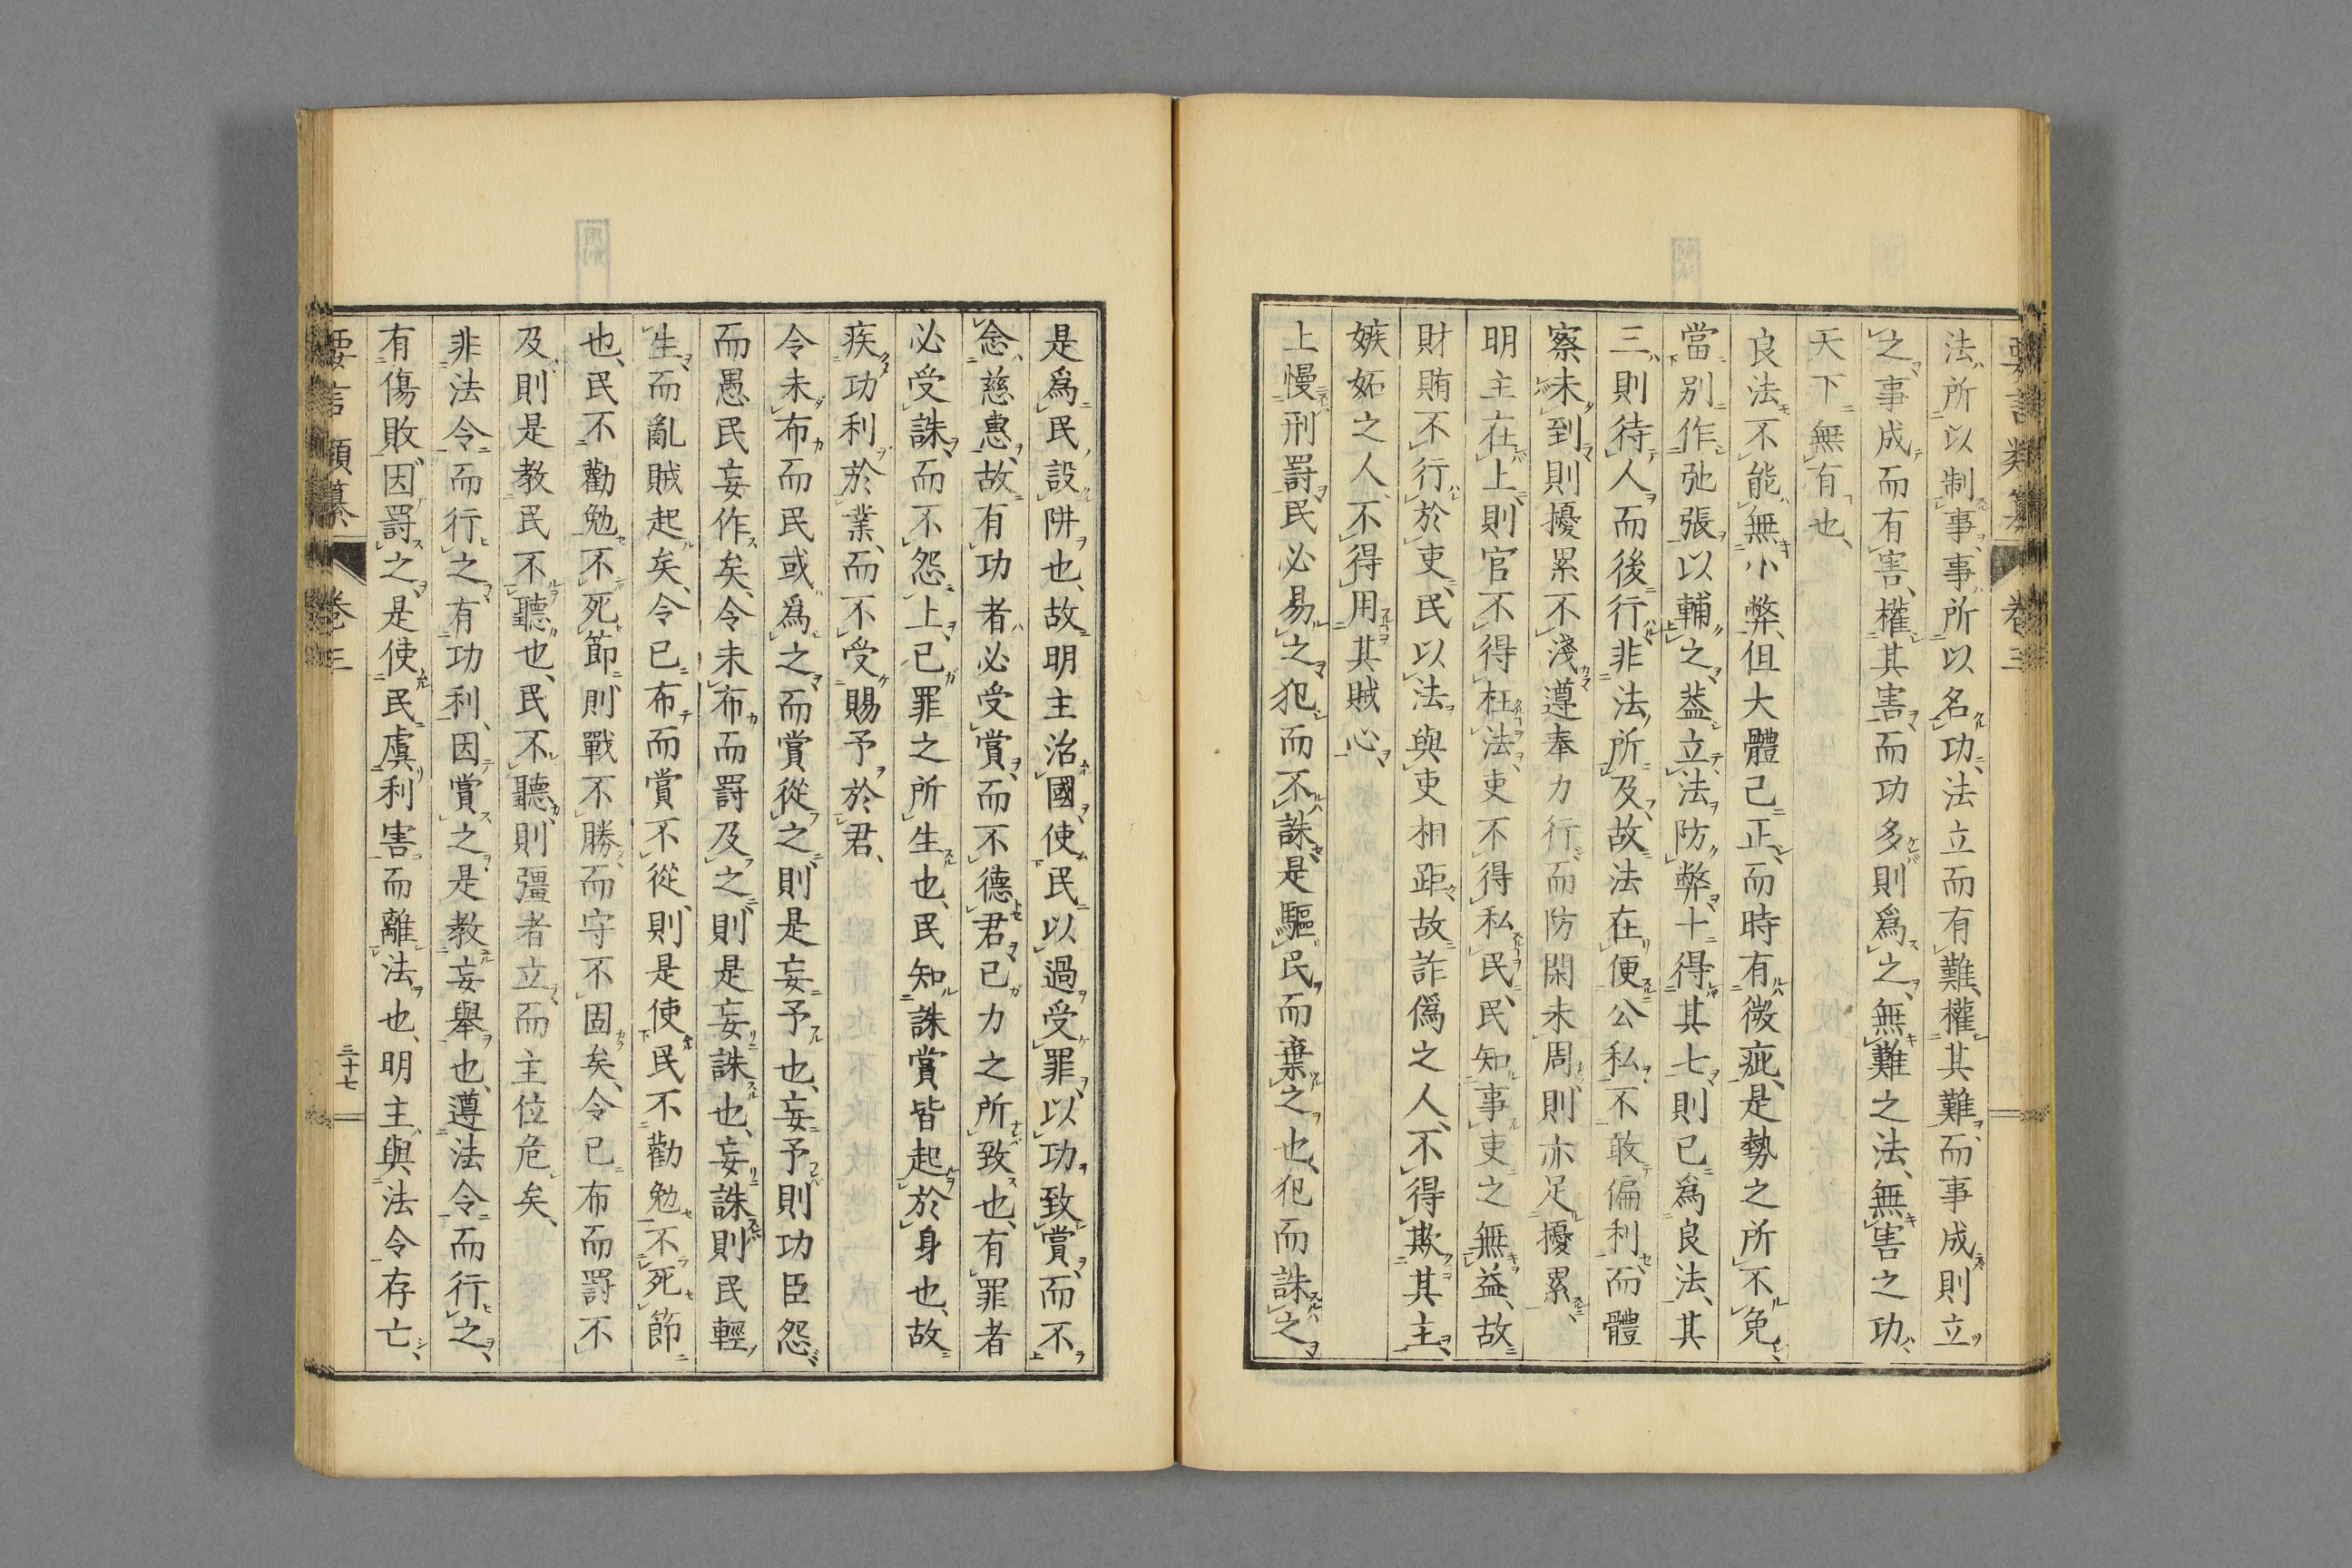 要言類纂 卷三
法所以制事、事所以名功、法立而有難、權其難、而事成則立
之、事成而有害、權其害、而功多則爲之、無難之法、無害之功、
天下無有也、
良法不能無小弊、但大體已正、而時有微疵、是勢之所不免、
當別作弛張以輔之、蓋立法防弊、十得其七、則已爲良法、其
三則待人而後行、非法所及、故法在便公私、不敢偏利、而體
察未到則擾累、不淺遵奉力行、而防閑未周、則亦足擾累、
明主在上、則官不得枉法、吏不得私民、民知事吏之無益、故
財賄不行於吏、民以法與吏相距、故詐僞之人、不得欺其主、
嫉妬之人、不得用其賊心、
上慢刑罰、民必易之、犯而不誅、是驅民而棄之也、犯而誅之、
是爲民設阱也、故明主治國、使民以過受罪、以功致賞、而不
念慈惠、故有功者必受賞、而不德君、己力之所致也、有罪者
必受誅、而不怨上、己罪之所生也、民知誅賞皆起於身也、故
疾功利於業、而不受賜予於君、
令未布而民或爲之、而賞從之、則是妄予也、妄予則功臣怨、
而愚民妄作矣、令未布而罰及之、則是妄誅也、妄誅則民輕
生、而亂賊起矣、令已布而賞不從、則是使民不勸勉、不死節
也、民不勸勉、不死節、則戰不勝、而守不固矣、令已布而罰不
及、則是教民不聽也、民不聽、則彊者立、而主位危矣、
非法令而行之、有功利、因賞之、是教妄舉也、遵法令而行之、
有傷敗、因罰之、是使民虞利害、而離法也、明主與法令存亡、
要言類纂 卷三 三十七